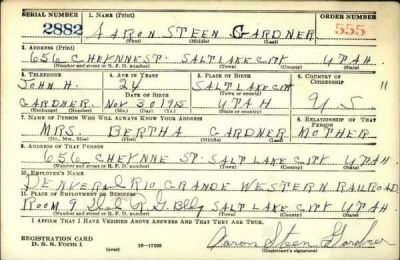 SERIAL NUMBER 1. NAME (Print) ORDER NUMBER
2882 AARON STEEN GARDNER 555
(First) (Middle) (Last)
2. ADDRESS (Print)
656 CHEYNNE ST. SALT LAKE CITY UTAH
(Number and street or R. F. D. number) (Town) (County) (State)
3. TELEPHONE 4. AGE IN YEARS 5. PLACE OF BIRTH 6. COUNTRY OF CITIZENSHIP
JOHN H. 24 SALT LAKE CITY
DATE OF BIRTH
GARDNER NOV 30 1915 UTAH U S
7. NAME OF PERSON WHO WILL ALWAYS KNOW YOUR ADDRESS 8. RELATIONSHIP OF THAT PERSON
MRS. BERTHA GARDNER MOTHER
(Mr., Mrs., Miss) (First) (Middle) (Last)
9. ADDRESS OF THAT PERSON
656 CHEYNNE ST. SALT LAKE CITY UTAH
(Number and street or R. F. D. number) (Town) (County) (State)
10. EMPLOYER'S NAME
DENVER & RIO GRANDE WESTERN RAILROAD
11. PLACE OF EMPLOYMENT OR BUSINESS
ROOM 9 R G Bldg SALT LAKE CITY UTAH
(Number and street or R. F. D. number) (Town) (County) (State)
I AFFIRM THAT I HAVE VERIFIED ABOVE ANSWERS AND THAT THEY ARE TRUE.
REGISTRATION CARD
D. S. S. FORM 1 (over) Aaron Steen Gardner
(Registrant's signature)